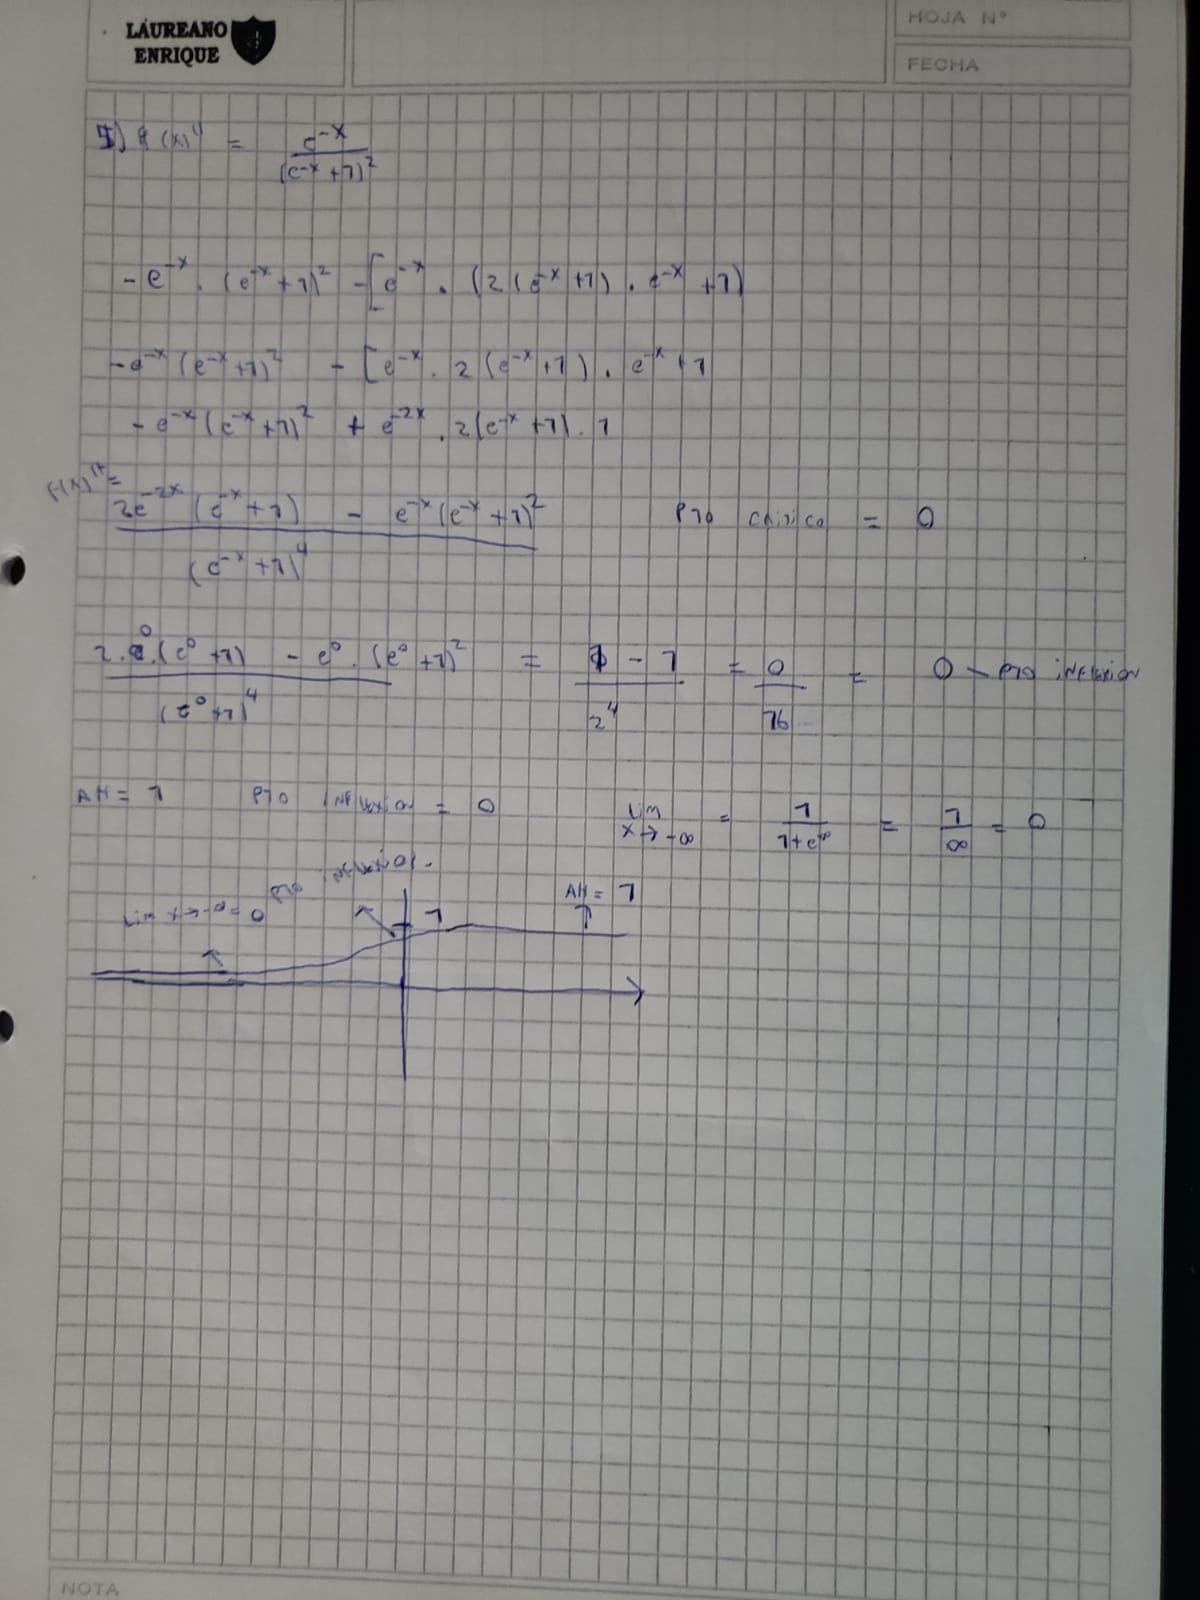 LAUREANO
ENRIQUE
HOJA Nº
FECHA
5) f(x)' = e^-x / (e^-x + 1)^2
-e^-x . (e^-x + 1)^2 - [e^-x . (2(e^-x + 1) . e^-x + 1)
-e^-x (e^-x + 1)^2 - [e^-x . 2(e^-x + 1) . e^-x + 1
-e^-x (e^-x + 1)^2 + e^-2x . 2(e^-x + 1) . 1
f(x)'' =
2e^-2x (e^-x + 1) - e^-x (e^-x + 1)^2 / (e^-x + 1)^4 PTO critico = 0
2.e^0.(e^0 + 1) - e^0.(e^0 + 1)^2 / (e^0 + 1)^4 = 1 - 1 / 2^4 = 0 / 16 = 0 - PTO inflexion
AH = 1 PTO inflexion = 0 Lim x→-∞ = 1 / 1+e^∞ = 1 / ∞ = 0
PTO inflexion.
Lim x→-∞ = 0
1
AH = 1
NOTA